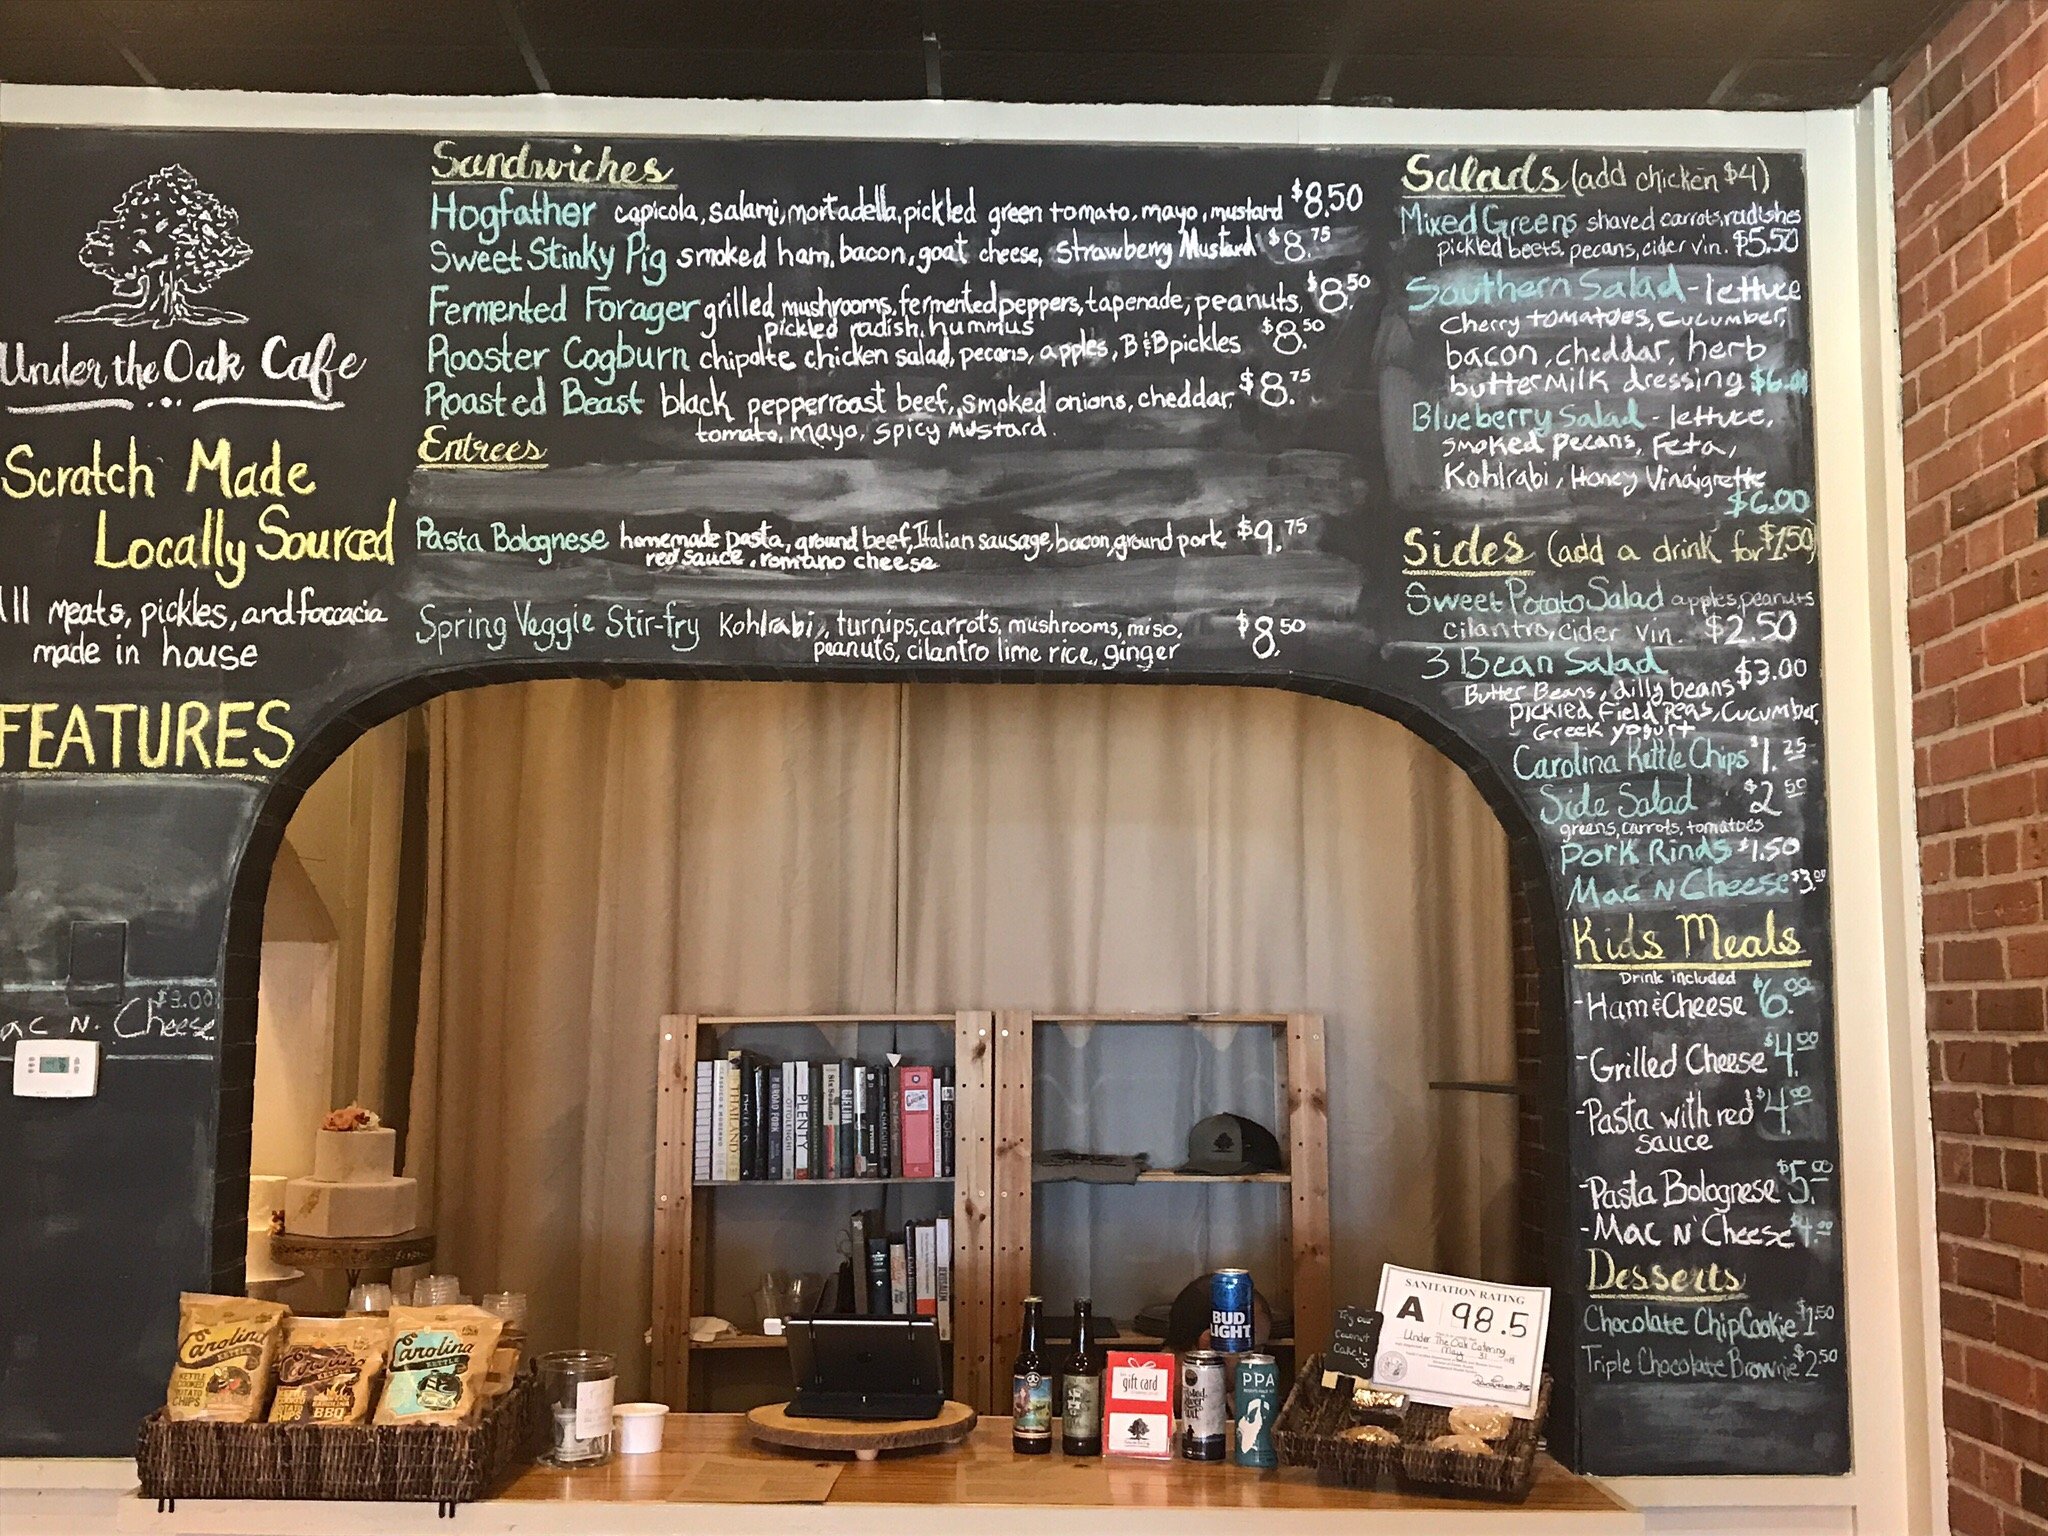 Under the Oak Cafe
Scratch Made
Locally Sourced
All meats, pickles, and foccacia
made in house
FEATURES
$3.00
ac N. Cheese
Sandwiches
Hogfather capicola, salami, mortadella, pickled green tomato, mayo, mustard $8.50
Sweet Stinky Pig smoked ham, bacon, goat cheese, Strawberry Mustard $8.75
Fermented Forager grilled mushrooms, fermented peppers, tapenade, peanuts, $8.50
pickled radish, hummus
Rooster Cogburn chipolte chicken salad, pecans, apples, B&B pickles $8.50
Roasted Beast black pepper roast beef, smoked onions, cheddar, $8.75
tomato, mayo, spicy mustard.
Entrees
Pasta Bolognese homemade pasta, ground beef, Italian sausage, bacon, ground pork $9.75
red sauce, romano cheese
Spring Veggie Stir-fry Kohlrabi, turnips, carrots, mushrooms, miso, $8.50
peanuts, cilantro lime rice, ginger
Salads (add chicken $4)
Mixed Greens shaved carrots, radishes
pickled beets, pecans, cider vin. $5.50
Southern Salad - lettuce
cherry tomatoes, cucumber,
bacon, cheddar, herb
buttermilk dressing $6.00
Blueberry Salad - lettuce,
smoked pecans, Feta,
Kohlrabi, Honey Vinaigrette
$6.00
Sides (add a drink for $1.50)
Sweet Potato Salad apples, peanuts
cilantro, cider vin. $2.50
3 Bean Salad $3.00
Butter Beans, dilly beans
pickled Field Peas, cucumber,
Greek yogurt
Carolina Kettle Chips $1.25
Side Salad $2.50
greens, carrots, tomatoes
Pork Rinds $1.50
Mac N Cheese $3.00
Kids Meals
Drink included
-Ham & Cheese $6.00
-Grilled Cheese $4.00
-Pasta with red $4.00
sauce
-Pasta Bolognese $5.00
-Mac N' Cheese $4.00
Desserts
Chocolate Chip Cookie $1.50
Triple Chocolate Brownie $2.50
THAILAND
BROAD FORK
PLENTY
OTTOLENGHI
Six Seasons
GJELINA
JERUSALEM
Carolina
KETTLE
KETTLE
COOKED
POTATO
CHIPS
Carolina
KETTLE
BBQ
Carolina
KETTLE
BUD
LIGHT
gift card
PPA
Try our
Coconut
Cake!
SANITATION RATING
A 98.5
Under The Oak Catering
May 31